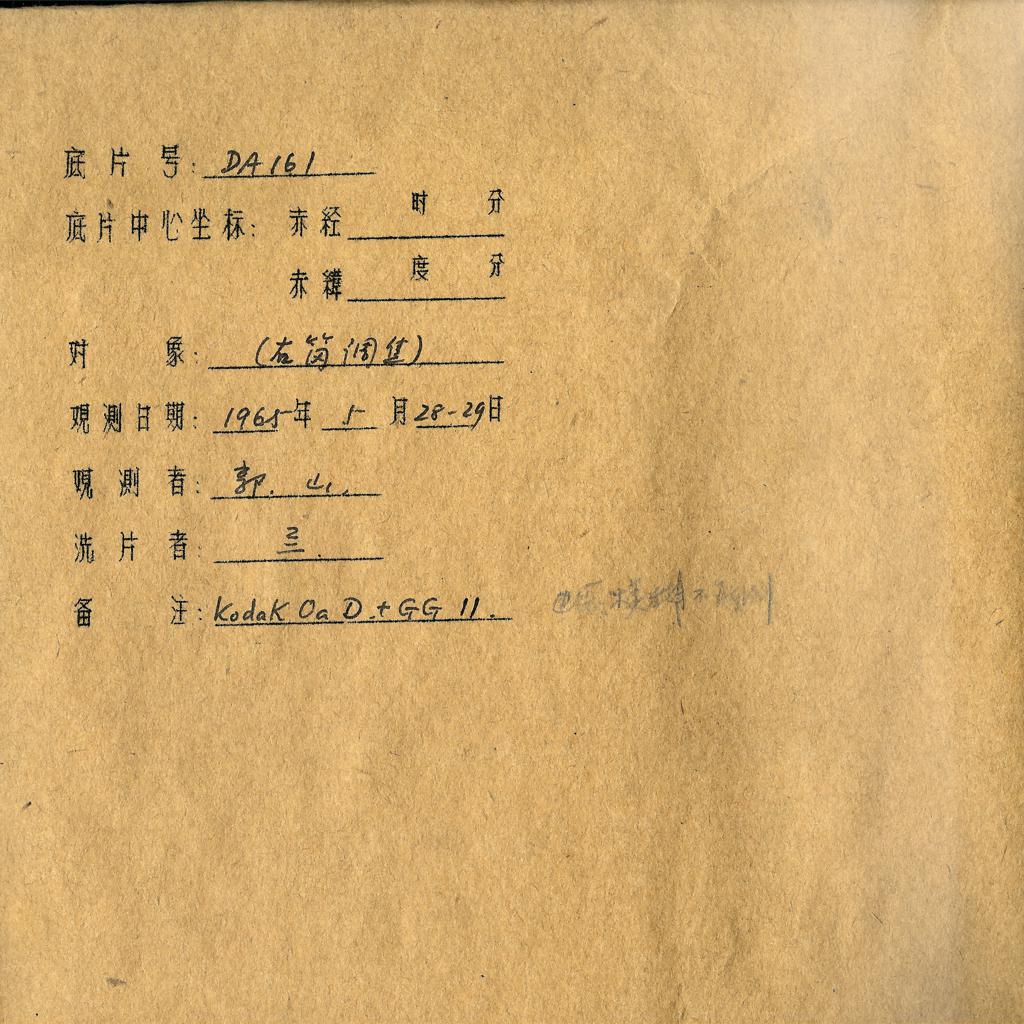 底片号: DA161
底片中心坐标: 赤经 时 分
赤纬 度 分
对象: (右筒调焦)
观测日期: 1965年 5月28-29日
观测者: 郭. 山.
洗片者: 三.
备注: Kodak Oa D.+GG 11.